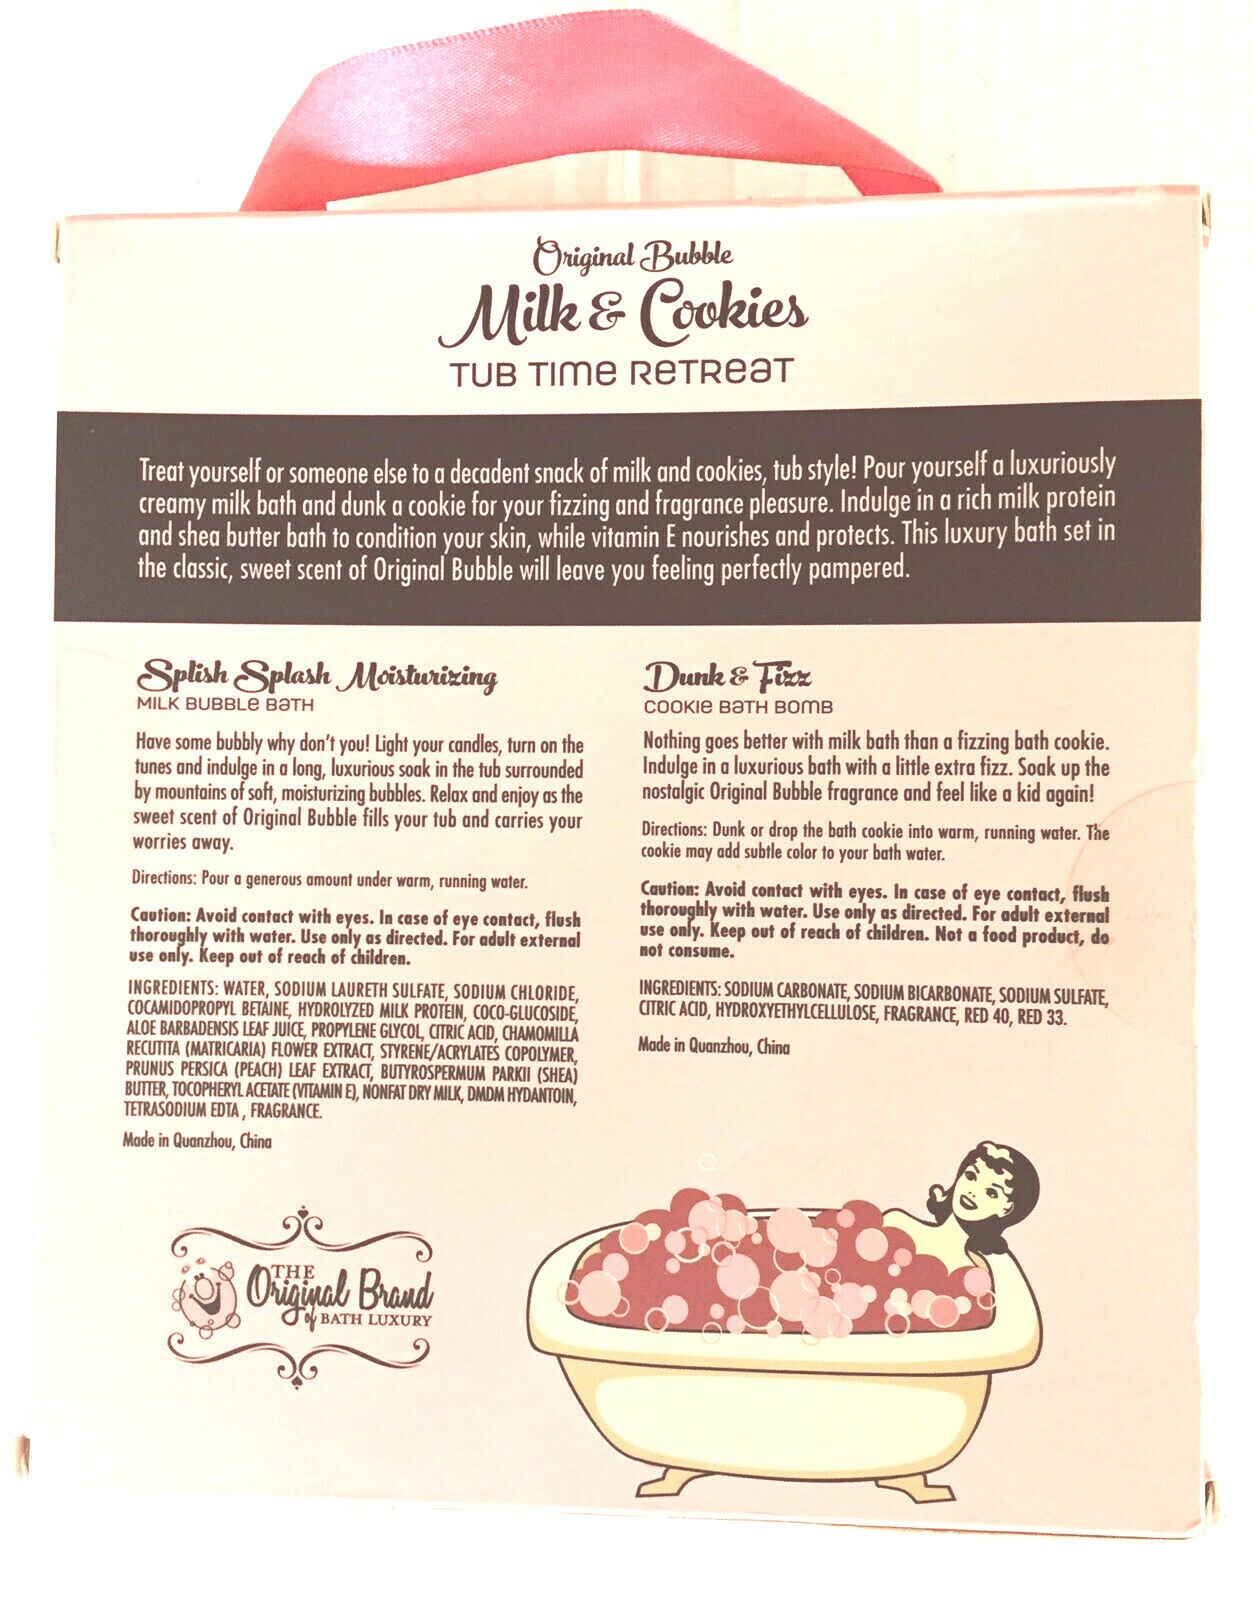 Original Bubble
Milk & Cookies
TUB TIME RETREAT
Treat yourself or someone else to a decadent snack of milk and cookies, tub style! Pour yourself a luxuriously
creamy milk bath and dunk a cookie for your fizzing and fragrance pleasure. Indulge in a rich milk protein
and shea butter bath to condition your skin, while vitamin E nourishes and protects. This luxury bath set in
the classic, sweet scent of Original Bubble will leave you feeling perfectly pampered.
Splish Splash Moisturizing
MILK BUBBLE BATH
Have some bubbly why don't you! Light your candles, turn on the
tunes and indulge in a long, luxurious soak in the tub surrounded
by mountains of soft, moisturizing bubbles. Relax and enjoy as the
sweet scent of Original Bubble fills your tub and carries your
worries away.
Directions: Pour a generous amount under warm, running water.
Caution: Avoid contact with eyes. In case of eye contact, flush
thoroughly with water. Use only as directed. For adult external
use only. Keep out of reach of children.
INGREDIENTS: WATER, SODIUM LAURETH SULFATE, SODIUM CHLORIDE,
COCAMIDOPROPYL BETAINE, HYDROLYZED MILK PROTEIN, COCO-GLUCOSIDE,
ALOE BARBADENSIS LEAF JUICE, PROPYLENE GLYCOL, CITRIC ACID, CHAMOMILLA
RECUTITA (MATRICARIA) FLOWER EXTRACT, STYRENE/ACRYLATES COPOLYMER,
PRUNUS PERSICA (PEACH) LEAF EXTRACT, BUTYROSPERMUM PARKII (SHEA)
BUTTER, TOCOPHERYL ACETATE (VITAMIN E), NONFAT DRY MILK, DMDM HYDANTOIN,
TETRASODIUM EDTA , FRAGRANCE.
Made in Quanzhou, China
Dunk & Fizz
COOKIE BATH BOMB
Nothing goes better with milk bath than a fizzing bath cookie.
Indulge in a luxurious bath with a little extra fizz. Soak up the
nostalgic Original Bubble fragrance and feel like a kid again!
Directions: Dunk or drop the bath cookie into warm, running water. The
cookie may add subtle color to your bath water.
Caution: Avoid contact with eyes. In case of eye contact, flush
thoroughly with water. Use only as directed. For adult external
use only. Keep out of reach of children. Not a food product, do
not consume.
INGREDIENTS: SODIUM CARBONATE, SODIUM BICARBONATE, SODIUM SULFATE,
CITRIC ACID, HYDROXYETHYLCELLULOSE, FRAGRANCE, RED 40, RED 33.
Made in Quanzhou, China
THE
Original Brand
of BATH LUXURY